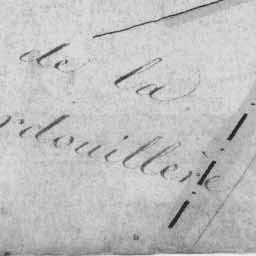 de la
rdouillère